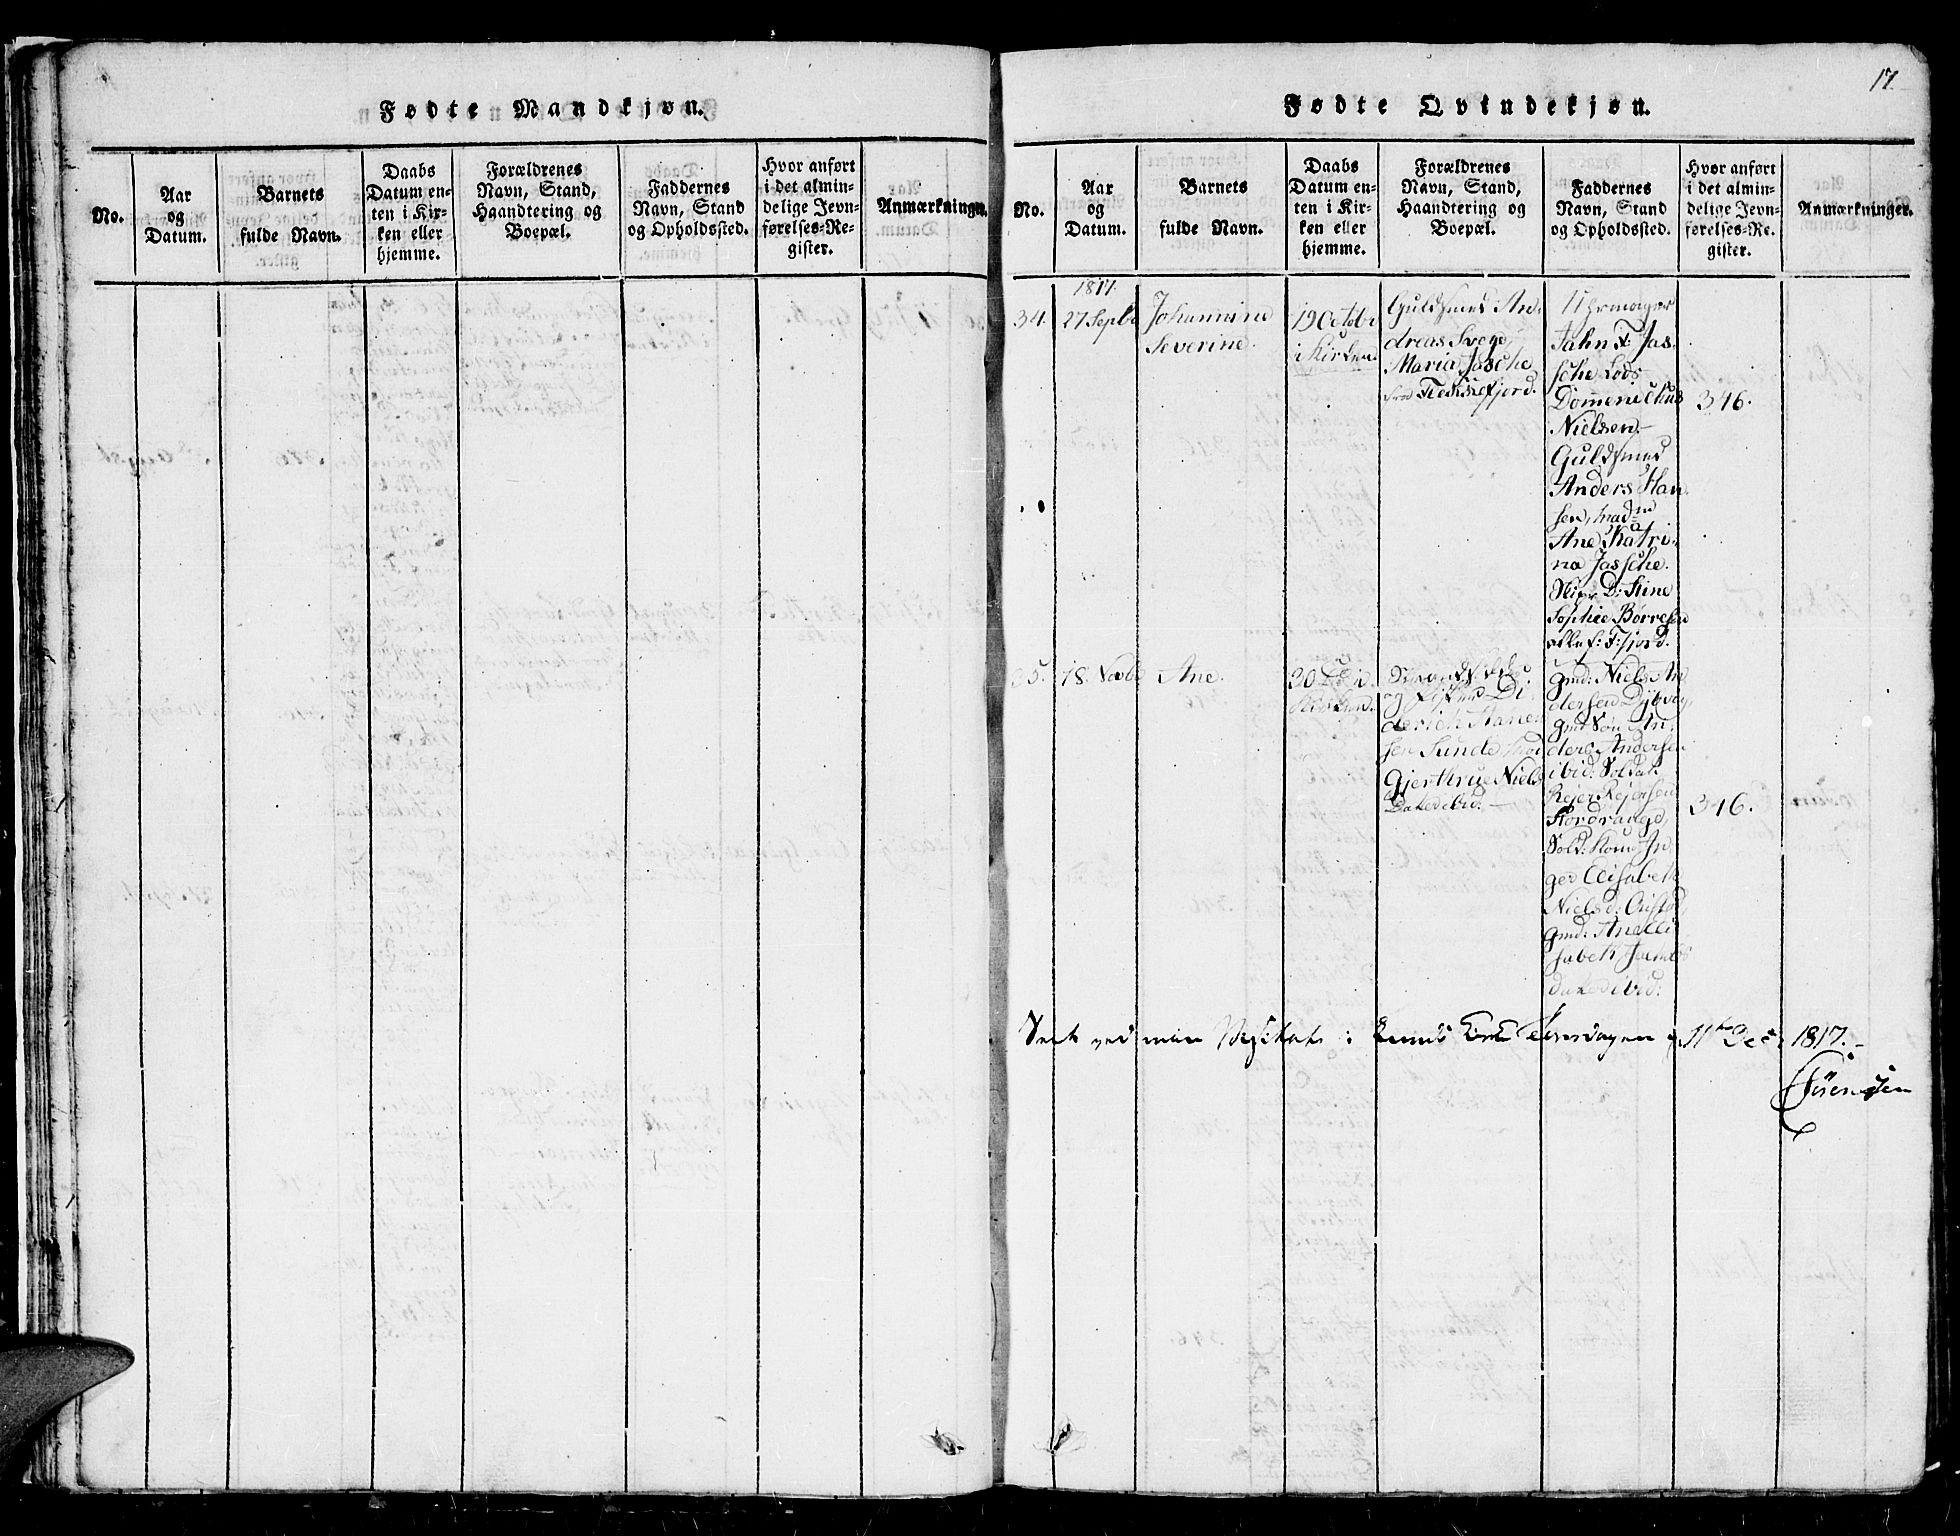 17.
Fødte Mandkjøn.
No.
Aar
og
Datum.
Barnets
fulde Navn.
Daabs
Datum en-
ten i Kir-
ken eller
hjemme.
Forældrenes
Navn, Stand,
Haandtering og
Boepæl.
Faddernes
Navn, Stand
og Opholdssted.
Hvor anført
i det almin-
delige Jevn-
førelses-Re-
gister.
Anmærkninger.
Fødte Qvindekjøn.
No.
Aar
og
Datum.
Barnets
fulde Navn.
Daabs
Datum en-
ten i Kir-
ken eller
hjemme.
Forældrenes
Navn, Stand,
Haandtering og
Boepæl.
Faddernes
Navn, Stand
og Opholdssted.
Hvor anført
i det almin-
delige Jevn-
førelses-Re-
gister.
Anmærkninger.
1817.
34.
27 Septbr
Johannine
Severine.
19 Octobr
i Kirken.
Guldsmed An-
dreas Svege,
Maria Jasche
fra Flekkefjord.
Uhrmager
Jahn F: Jas-
sche Lods
Domenichus
Nielsen-
Guldsmed
Anders Han-
sen, Mad
Ane Katri-
na Jassche.
D: Stine
Sophie Børresen
F:fjord.
346.
35.
18 Novbr
Ane.
30
Kirken.
og Di-
derich Hane-
sen Sunde
Gjertrue Niels
Datter ibid.-
gmd: Niels An-
dersen Dybvig,
gmd Søn An-
ders Andersen
ibid: Soldat
Rejer Rejersen
Sold: Kone In-
ger Elisabeth
Nielsd:
gmd: Ane Eli-
sabeth Jacobs
datter ibid:
346.
Seet ved min Visitats i 11te Dec: 1817.-
Sørensen